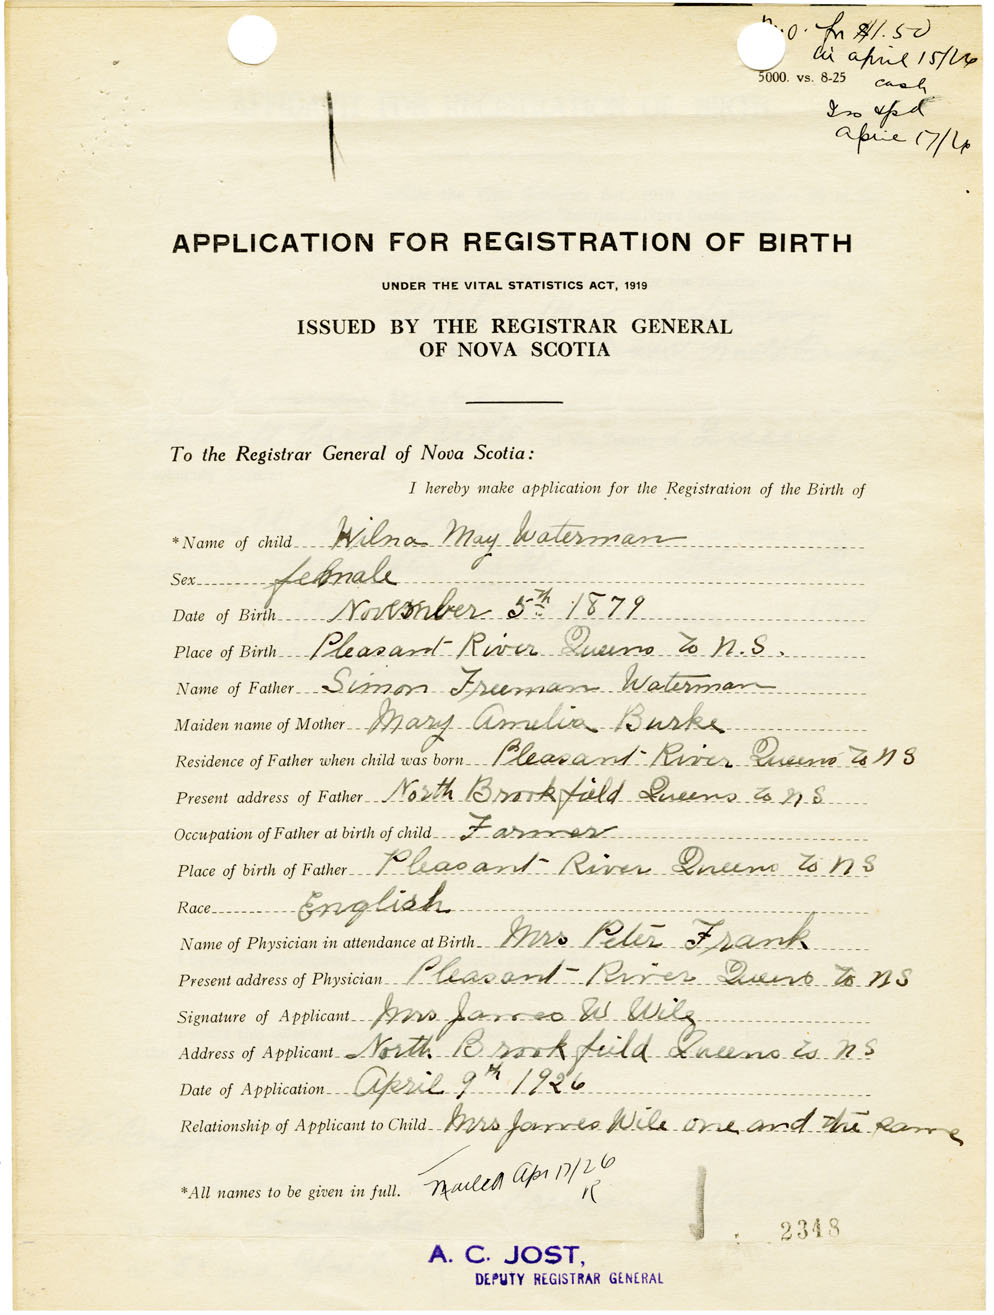 M.O. for $1.50
in April 15/26
5000. vs. 8-25 cash
April 17/26
APPLICATION FOR REGISTRATION OF BIRTH
UNDER THE VITAL STATISTICS ACT, 1919
ISSUED BY THE REGISTRAR GENERAL
OF NOVA SCOTIA
To the Registrar General of Nova Scotia:
I hereby make application for the Registration of the Birth of
*Name of child Wilna May Waterman
Sex female
Date of Birth November 5th 1879
Place of Birth Pleasant River Queens Co N.S.
Name of Father Simon Freeman Waterman
Maiden name of Mother Mary Amelia Burke
Residence of Father when child was born Pleasant River Queens Co N S
Present address of Father North Brookfield Queens Co N S
Occupation of Father at birth of child Farmer
Place of birth of Father Pleasant River Queens Co N S
Race English
Name of Physician in attendance at Birth Mrs Peter Frank
Present address of Physician Pleasant River Queens Co N S
Signature of Applicant Mrs James W Wile
Address of Applicant North Brookfield Queens Co N S
Date of Application April 9th 1926
Relationship of Applicant to Child Mrs James Wile one and the same
*All names to be given in full. Mailed Apr 17/26
R
2348
A. C. JOST,
DEPUTY REGISTRAR GENERAL